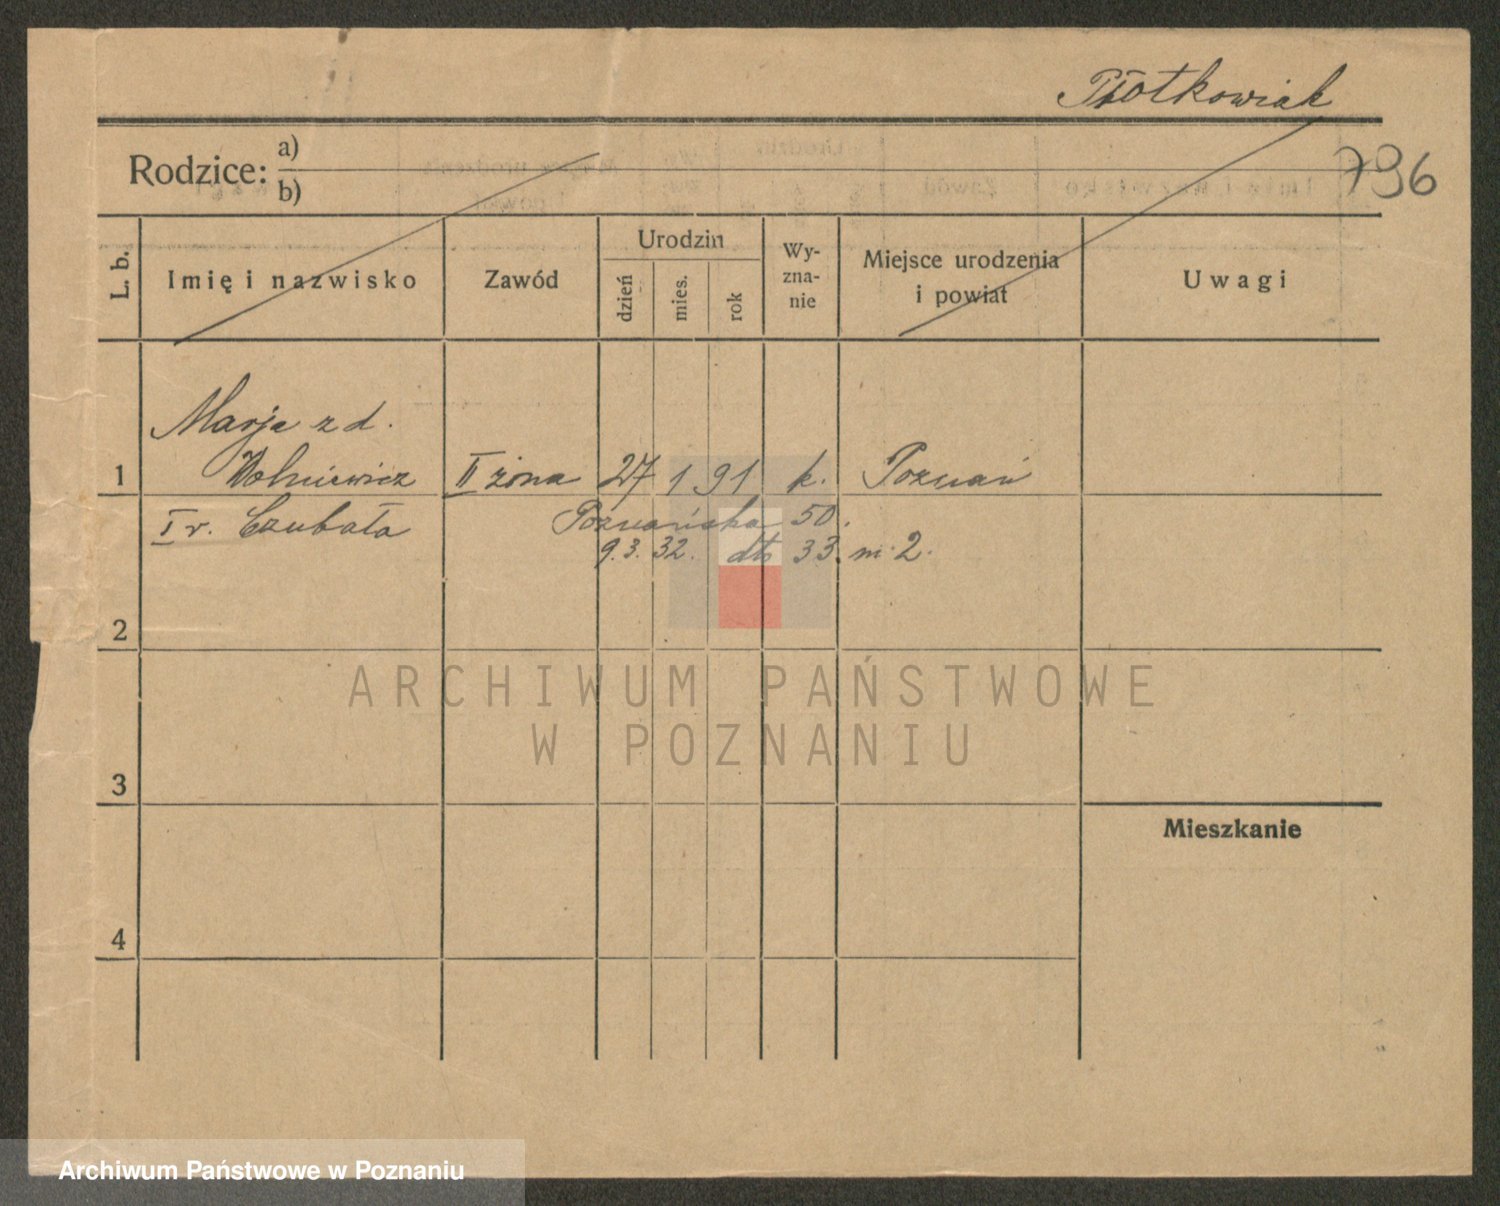 Płotkowiak
Rodzice: a)
b)
796
L. b.
Imię i nazwisko
Zawód
Urodzin
dzień
mies.
rok
Wy-
zna-
nie
Miejsce urodzenia
i powiat
Uwagi
Marja z d.
1 Wolniewicz II żona 27 1 91 k. Poznań
I v. Czubała Poznańska 50.
9.3.32. dto 33 m. 2.
2
ARCHIWUM PAŃSTWOWE
W POZNANIU
3
Mieszkanie
4
Archiwum Państwowe w Poznaniu